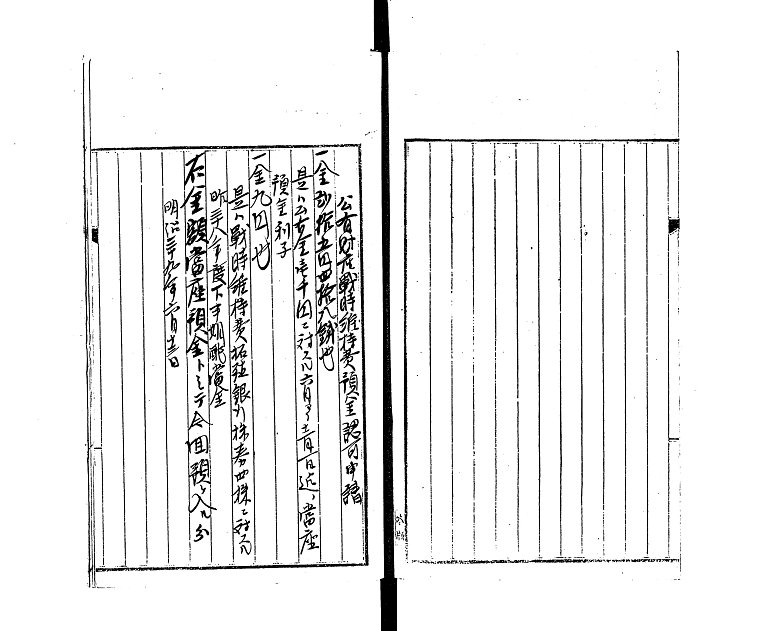 公有財産戦時維持費預金認可申請
一金弐拾五円四拾八銭也
是ハ公有金壱千円ニ対スル六月ヨリ十二月一日迄ノ當座
預金利子
一金九円也
是ハ戦時維持費拓殖銀行株券四株ニ対スル
昨三十八年度下半期配當金
右金額當座預金トシテ今回預ケ入レ分
明治三十九年六月十三日